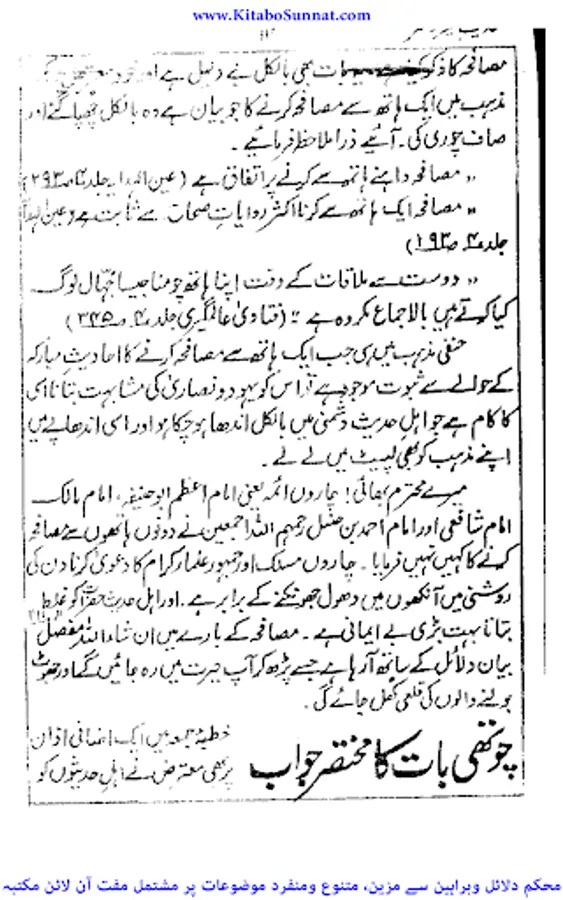 www.KitaboSunnat.com
مصافحہ کا ذکر بات بھی بالکل بے دلیل ہے اور خود
مذہب میں ایک ہاتھ سے مصافحہ کرنے کا جو بیان ہے وہ بالکل چھپا گئے اور
صاف چوری کی۔ آئیے ذرا ملاحظہ فرمائیے۔
"مصافحہ داہنے ہاتھ سے کرنے پر اتفاق ہے (عین الہدایہ جلد ۴ ص ۲۹۳)
"مصافحہ ایک ہاتھ سے کرنا اکثر روایات صحاح سے ثابت ہے (عین الہدا
جلد ۴ ص ۱۹۳)
"دوست سے ملاقات کے وقت اپنا ہاتھ چومنا جیسا جہال لوگ
کیا کرتے ہیں بالاجماع مکروہ ہے" (فتاویٰ عالمگیری جلد ۴ ص ۳۴۵)
حنفی مذہب میں ہی جب ایک ہاتھ سے مصافحہ کرنے کا احادیث مبارکہ
کے حوالے سے ثبوت موجود ہے تو اس کو یہود و نصاریٰ کی مشابہت بتانا اسی
کا کام ہے جو اہل حدیث دشمنی میں بالکل اندھا ہو چکا ہو اور اسی اندھاپے میں
اپنے مذہب کو بھی لپیٹ میں لے لے۔
میرے محترم بھائی! چاروں ائمہ یعنی امام اعظم ابو حنیفہ، امام مالک
امام شافعی اور امام احمد بن حنبل رحمہم اللہ اجمعین نے دونوں ہاتھوں سے مصافحہ
کرنے کا کہیں نہیں فرمایا۔ چاروں مسلک اور جمہور علمار کرام کا دعویٰ کرنا دن کی
روشنی میں آنکھوں میں دھول جھونکنے کے برابر ہے۔ اور اہل حدیث حضرات کو غلط
بتانا بہت بڑی بے ایمانی ہے۔ مصافحہ کے بارے میں ان شاء اللہ مفصل
بیان دلائل کے ساتھ آرہا ہے جسے پڑھ کر آپ حیرت میں رہ جائیں گے اور جھوٹ
بولنے والوں کی قلعی کھل جائے گی۔
چوتھی بات کا مختصر جواب
خطبۂ جمعہ میں ایک اضافی اذان
پر بھی معترض نے اہل حدیثوں کو
محکم دلائل وبراہین سے مزین، متنوع ومنفرد موضوعات پر مشتمل مفت آن لائن مکتبہ